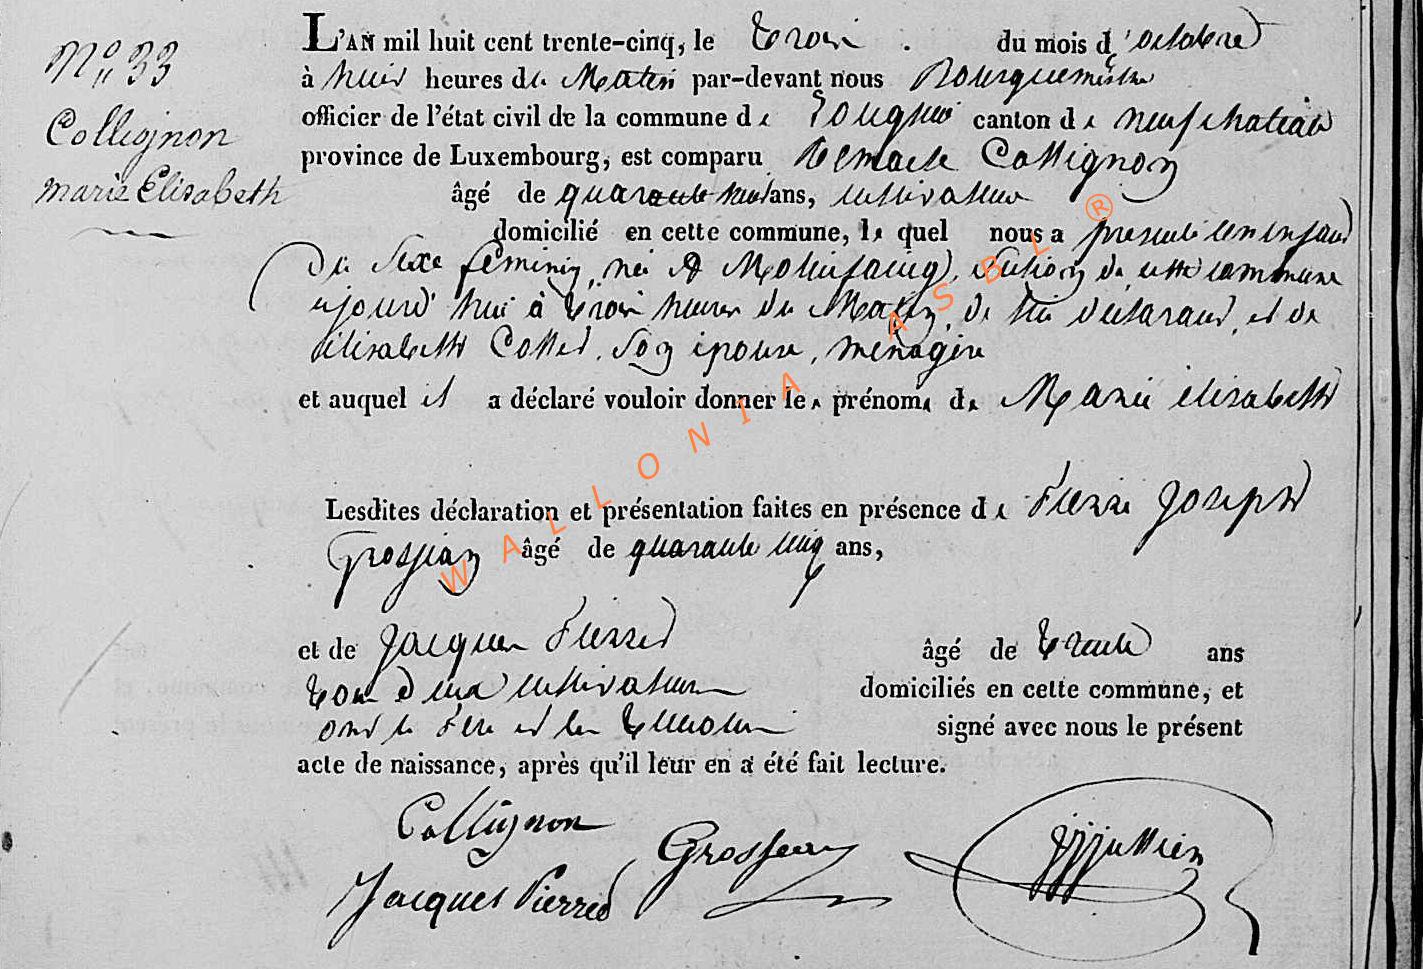 N° 33
Collignon
Marie Elisabeth
L'AN mil huit cent trente-cinq, le trois du mois d'octobre
à huit heures du Matin par-devant nous Bourguemestre
officier de l'état civil de la commune de canton de neufchateau
province de Luxembourg, est comparu Remacle Collignon
âgé de quarante huit ans, cultivateur
domicilié en cette commune, le quel nous a presenté un enfant
du sexe féminin, né à Molinfaing, section de cette commune
ajourd'hui à trois heures du Matin, de lui déclarant, et de
élisabeth Collet, son épouse, ménagère
et auquel il a déclaré vouloir donner les prénoms de Marie élisabeth
Lesdites déclaration et présentation faites en présence de Pierre Joseph
Grosjean âgé de quarante cinq ans,
et de Jacques Pierret âgé de trente ans
tous deux cultivateurs domiciliés en cette commune, et
ont le Père et les temoins signé avec nous le présent
acte de naissance, après qu'il leur en a été fait lecture.
Collignon
Grosjean
Jacques Pierret
WALLONIA ASBL ®